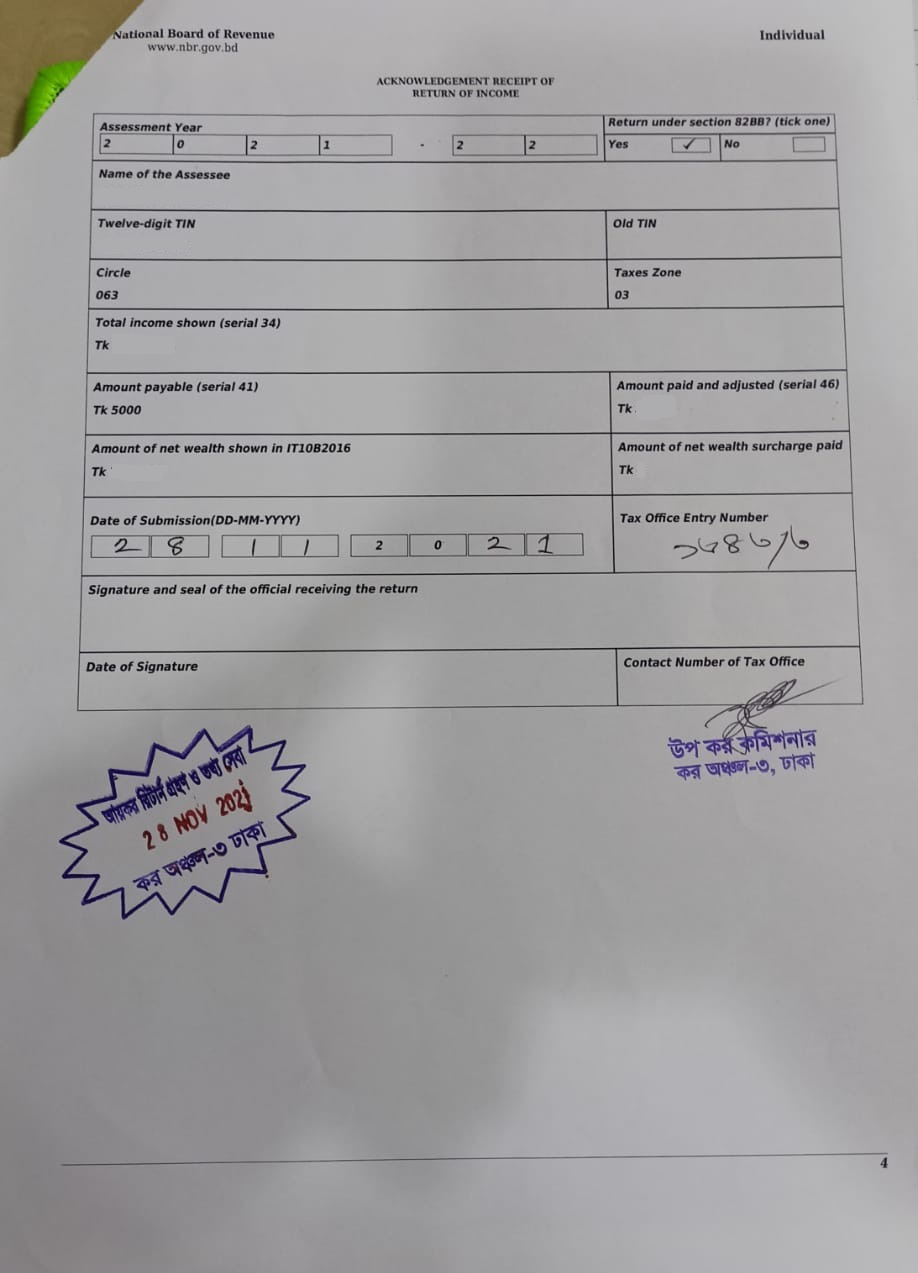 National Board of Revenue
www.nbr.gov.bd
Individual
ACKNOWLEDGEMENT RECEIPT OF
RETURN OF INCOME
Assessment Year
2 0 2 1 - 2 2
Return under section 82BB? (tick one)
Yes ✓ No
Name of the Assessee
Twelve-digit TIN
Old TIN
Circle
063
Taxes Zone
03
Total income shown (serial 34)
Tk
Amount payable (serial 41)
Tk 5000
Amount paid and adjusted (serial 46)
Tk
Amount of net wealth shown in IT10B2016
Tk
Amount of net wealth surcharge paid
Tk
Date of Submission(DD-MM-YYYY)
2 8 1 1 2 0 2 1
Tax Office Entry Number
Signature and seal of the official receiving the return
Date of Signature
Contact Number of Tax Office
উপ কর কমিশনার
কর অঞ্চল-৩, ঢাকা
আয়কর রিটার্ন গ্রহণ ও তথ্য সেবা
28 NOV 2021
কর অঞ্চল-৩ ঢাকা
4